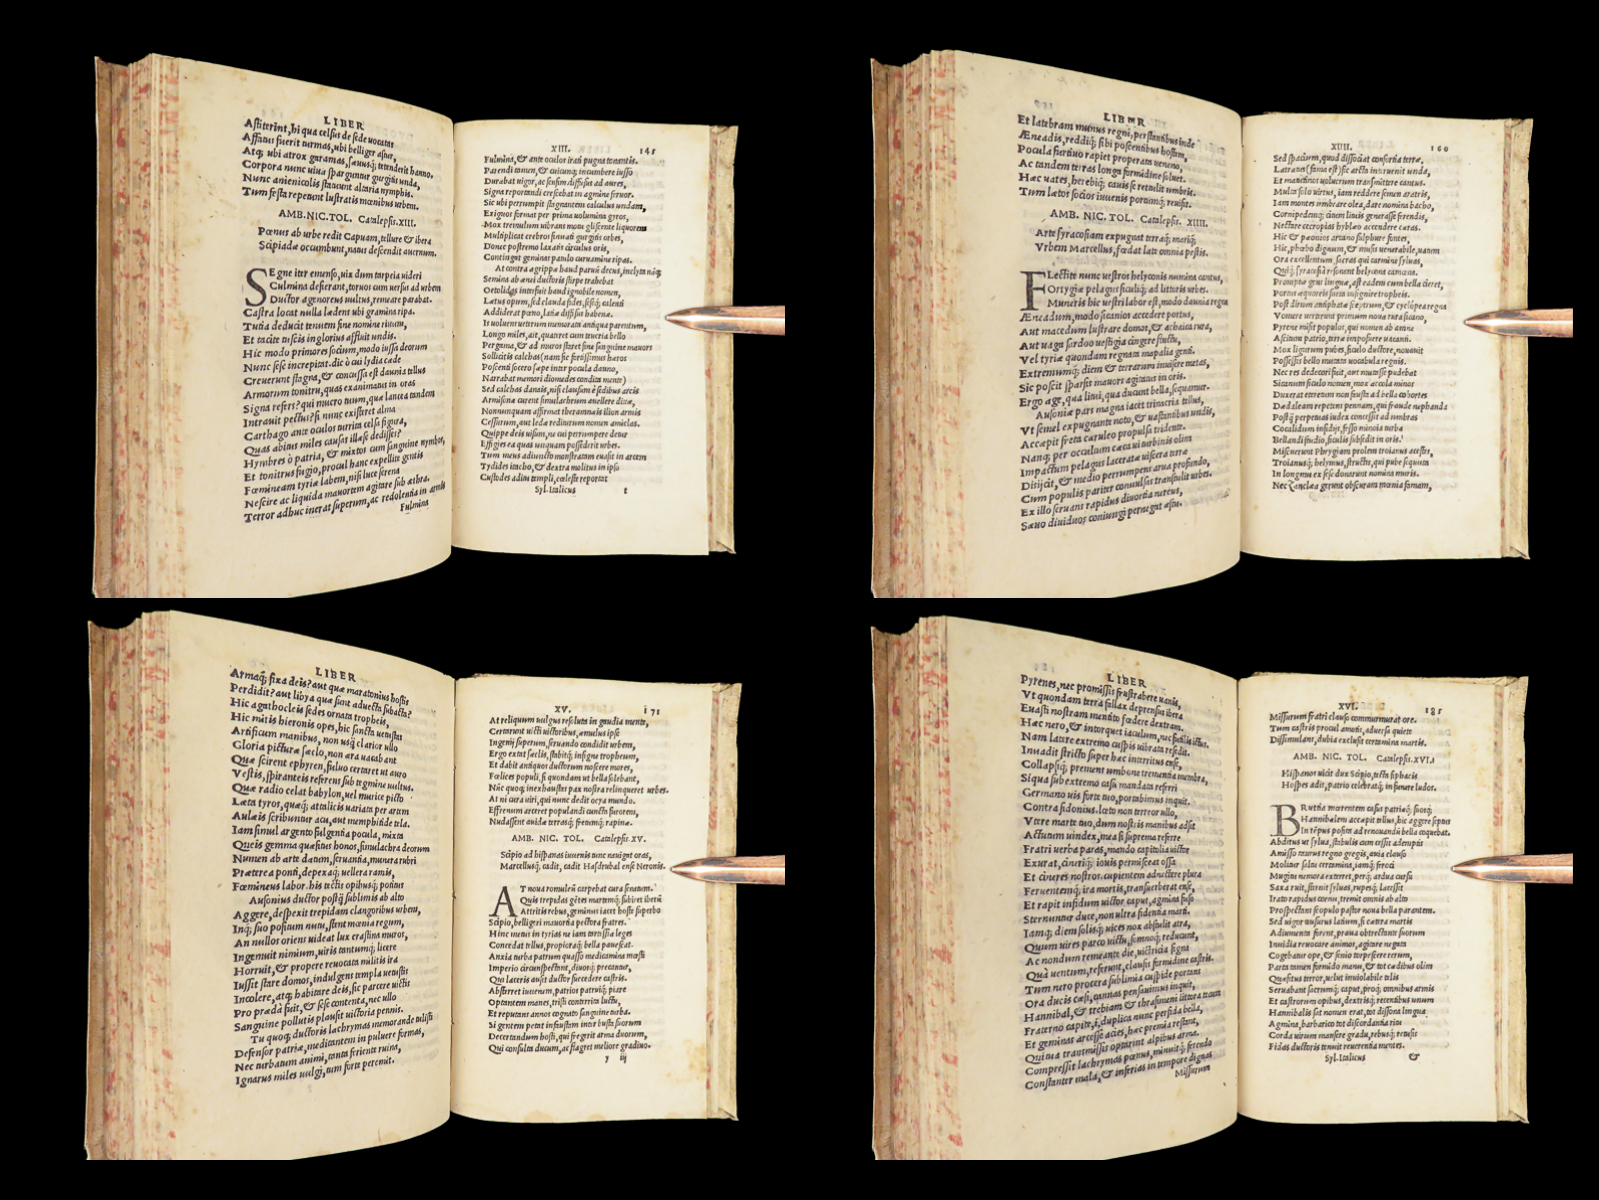 LIBER
Astiterint, hi qua celsus de sede uocatas
Afflatus fuerit turmas, ubi belliger astur,
Atq; ubi atrox garamas, sæuusq; tetenderit hanno,
Corpora nunc uiua sparguntur gurgitis unda,
Nunc anienicolis statuunt altaria nymphis.
Tum festa repetunt lustratis mœnibus urbem.
AMB. NIC. TOL. Catalepsis. XIII.
Pœnus ab urbe redit Capuam, tellure & ibera
Scipiadæ occumbunt, natus descendit auernum.
SEgne iter emenso, uix dum tarpeia uideri
Culmina desierant, toruos cum uersus ad urbem
Ductor agenoreus uultus, remeare parabat.
Castra locat nulla lædent ubi gramina ripa.
Tutia deducit tenuem sine nomine riuum,
Et tacite tuscis inglorius affluit undis.
Hic modo primores socium, modo iussa deorum
Nunc sese increpitat. dic ò cui lydia cæde
Creuerunt stagna, & concussa est daunia tellus
Armorum tonitru, quas exanimatus in oras
Signa refers? qui mucro tuum, quæ lancea tandem
Intrauit pectus? si nunc existeret alma
Carthago ante oculos turrita celsa figura,
Quas abitus miles causas illæse dedisses?
Hymbres ò patria, & mixtos cum sanguine nymbos,
Et tonitrus fugio, procul hanc expellite gentis
Fœmineam tyriæ labem, nisi luce serena
Nescire ac liquida mauortem agitare sub æthra.
Terror adhuc inerat superum, ac redolentia in armis
Fulmina
XIII. 145
Fulmina, & ante oculos irati pugna tonantis.
Parendi tamen, & cuicunq; incumbere iusso
Durabat uigor, ac sensim diffusus ad aures,
Signa reportandi crescebat in agmine feruor.
Sic ubi perrumpit stagnantem calculus undam,
Exiguos format per prima uolumina gyros,
Mox tremulum uibrans motu gliscente liquorem
Multiplicat crebros sinuati gurgitis orbes,
Donec postremo laxatis circulus oris,
Contingat geminas patulo curuamine ripas.
At contra agrippæ haud paruū decus, inclyta nāq;
Semina ab ænei ductoris stirpe trahebat
Oetolides intersuit haud ignobile nomen,
Lætus opum, sed clauda fides, sesēq; calenti
Addiderat pœno, latiæ diffisus habenæ.
Is uoluens ueterum memorata antiqua parentum,
Longo miles, ait, quateret cum teucria bello
Pergama, & ad muros staret sine sanguine mauors
Sollicitis calchas (nam sic fortissimus hæros
Poscenti socero sæpe inter pocula dauno,
Narrabat memori diomedes condita mente)
Sed calchas danais, nisi clausum è sedibus arcis
Armisonæ curent simulachrum auellere diuæ,
Nonnunquam affirmat therapnæis ilion armis
Cessurum, aut ledæ rediturum nomen amiclas.
Quippe deis uisum, ne cui perrumpere detur
Effigies ea quas unquam possederit urbes.
Tum meus adiuncto monstratam euasit in arcem
Tydides itacho, & dextra molitus in ipso
Custodes adiu templi, cœleste reportat
Syl. Italicus t
LIBER
Et latebram munus regni, perstantibus inde
Æneadis, reddiq; sibi poscentibus hostem,
Pocula furtiuo rapiet properata ueneno,
Ac tandem terras longa formidine soluet.
Hæc uates, herebiq; cauis se retulit umbris.
Tum lætos socios iuuenis portumq; reuisit.
AMB. NIC. TOL. Catalepsis. XIIII.
Arte syracosiam expugnat terraq; mariq;
Vrbem Marcellus, fœdat late omnia pestis.
FLectite nunc uestros helyconis numina cantus,
Ortygiæ pelagus siculiq; ad littoris urbes.
Muneris hic uestri labor est, modo daunia regna
Æneadum, modo sicanios accedere portus,
Aut macedum lustrare domos, & achaica rura,
Aut uaga sardoo uestigia cingere fluctu,
Vel tyriæ quondam regnata mapalia genti.
Extremumq; diem & terrarum inuisere metas,
Sic poscit sparsis mauors agitatus in oris.
Ergo age, qua litui, qua ducunt bella, sequamur.
Ausoniæ pars magna iacet trinacria tellus,
Vt semel expugnante noto, & uastantibus undis,
Accæpit freta cæruleo propulsa tridente.
Nanq; per occulium cæca ui turbinis olim
Impactum pelagus laceratæ uiscera terræ
Discijcit, & medio perrumpens arua profundo,
Cum populis pariter conuulsas transtulit urbes.
Ex illo seruans rapidus diuortia nereus,
Sæuo diuiduos coniungi pernegat æstu.
XIIII. 160
Sed spacium, quod dissociat consortia terræ,
Latratus (fama est) sic arcta interuenit unda,
Et matutinos uolucrum transmittere cantus.
Multa solo uirtus, iam reddere fenus aratris,
Iam montes umbrare olea, dare nomina bacho,
Cornipedemq; citum lituis generasse ferendis,
Nectare cecropias hyblæo accendere ceras.
Hic & pæonios arcano sulphure fontes,
Hic, phœbo dignum, & musis uenerabile, uatum
Ora excellentum, sacras qui carmine syluas,
Quiq; syracosia resonent helycona camœna.
Promptæ gens linguæ, ast eadem cum bella cieret,
Portus æquoreis sueta insignire tropheis.
Post dirum antiphatæ sceptrum, & cyclopea regna
Vomere uerterunt primum noua rura sicano,
Pyrene misit populos, qui nomen ab amne
Ascitum patrio, terræ imposuere uacanti.
Mox ligurum pubes, siculo ductore, nouauit
Possessis bello mutata uocabula regnis.
Nec res dedecori fuit, aut mutasse pudebat
Sicanum siculo nomen, mox accola minos
Duxerat etterum non fausta ad bella cohortes
Dædaleam repetens pœnam, qui fraude nephanda
Postq; perpetuas iudex concessit ad umbras
Cocalidum insidijs, fesso minoia turba
Bellandi studio, siculis subsedit in oris.
Miscuerunt Phrygiam prolem troianus acestes,
Troianusq; helymus, structis, qui pube sequuta
In longum ex sese donarunt nomina muris.
Nec zanclæa gerunt obscuram mœnia famam,
LIBER
Armaq; fixa deis? aut quæ maratonius hostis
Perdidit? aut libya quæ sunt aduecta subacta?
Hic agathocleis sedes ornata tropheis,
Hic mitis hieronis opes, hic sancta uetustas
Artificum manibus, non usq; clarior ullo
Gloria picturæ sæclo, non æra uacabant
Quæ scirent ephyren, fuluo certaret ut auro
Vestis, spiranteis referens subtegmine uultus.
Quæ radio cælat babylon, uel murice picto
Læta tyros, quæq; attalicis uariata per artem
Aulæis scribuntur acu, aut memphitide tela.
Iam simul argento fulgentia pocula, mixta
Queis gemma quæsitus honos, simulachra deorum
Numen ab arte datum, seruantia, munera rubri
Præterea ponti, depexaq; uellera ramis,
Fœmineus labor. his tectis opibusq; potitus
Ausonius ductor postq̄ sublimis ab alto
Aggere, despexit trepidam clangoribus urbem,
Inq; suo positum nutu, stent mœnia regum,
An nullos oriens uideat lux crastina muros,
Ingemuit nimium, uiris tantumq; licere
Horruit, & propere reuocata militis ira
Iussit stare domos, indulgens templa uetustis
Incolere, atq; habitare deis, sic parcere uictis
Pro præda fuit, & sese contenta, nec ullo
Sanguine pollutis plausit uictoria pennis.
Tu quoq; ductoris lachrymas memorande tulisti
Defensor patriæ, meditantem in puluere formas,
Nec turbatum animi, tanta feriente ruina,
Ignarus miles uulgi, tum forte peremit.
XV. 171
At reliquum uulgus resoluta in gaudia mente,
Certarunt uicti uictoribus, æmulus ipse
Ingenij superum, seruando condidit urbem,
Ergo extat sæclis, stabitq; insigne tropheum,
Et dabit antiquos ductorum noscere mores,
Fœlices populi, si quondam ut bella solebant,
Nūc quoq; inexhaustas pax nostra relinqueret urbes.
At ni cura uiri, qui nunc dedit ocya mundo.
Effrenum arceret populandi cuncta furorem,
Nudassent auidæ terrasq; fretumq; rapinæ.
AMB. NIC. TOL. Catalepsis. XV.
Scipio ad hispanas iuuenis tunc nauigat oras,
Marcellusq; cadit, cadit Hasdrubal ense Neronis.
AT noua romuleū carpebat cura senatum.
Quis trepidas gētes martemq; subiret iberū
Attritis rebus, geminus iacet hoste superbo
Scipio, belligeri mauortia pectora fratres.
Hinc metus in tyrias ne iam tartessia leges
Concedat tellus, propioraq; bella pauescat.
Anxia turba patrum quasso medicamina mœsti
Imperio circunspectant, diuosq; precantur,
Qui laceris ausit ductor succedere castris.
Absterret iuuenem, patrios patruiq; piare
Optantem manes, tristi conterrita luctu,
Et reputans annos cognato sanguine turba.
Si gentem petat infaustam inter busta suorum
Decertandum hosti, qui fregerit arma duorum,
Qui consulta ducum, ac flagret meliore gradiuo.
y iij
LIBER
Pyrenes, nec promissis frustrabere uanis,
Vt quondam terræ fallax deprensus iberæ
Euasti nostram mentito fœdere dextram.
Hæc nero, & intorquet iaculum, nec futilis ictus.
Nam latere extremo cuspis uibrata resedit.
Inuadit stricto super hæc interritus ense,
Collapsiq; premens umbone trementia membra,
Siqua sub extremo casu mandata referri
Germano uis forte tuo, portabimus inquit.
Contra sidonius. lœto non terreor ullo,
Vtere marte tuo, dum nostris manibus adsit
Actutum uindex, mea si suprema referre
Fratri uerba paras, mando capitolia uictor
Exurat, cineriq; iouis permisceat ossa
Et cineres nostros. cupientem adnectere plura
Feruentemq; ira mortis, transuerberat ense,
Et rapit infidum uictor caput, agmina fuso
Sternuntur duce, non ultra fidentia marti.
Iamq; diem solisq; uices nox abstulit atra,
Quum uires parco uictu, somnoq; reducunt,
Ac nondum remeante die, uictricia signa
Quà uentum, referunt, clausis formidine castris.
Tum nero procera sublimia cuspide portans
Ora ducis cæsi, cannas pensauimus inquit,
Hannibal, & trebiam & thrasimeni littora tecum
Fraterno capite, i, duplica nunc perfida bella,
Et geminas arcesse acies, hæc premia restant,
Qui tua tramissis optarint alpibus arma.
Compressit lachrymas pœnus, minuitq; ferendo
Constanter mala, & inferias in tempore dignas
Missurum
XVI. 185
Missurum fratri clauso commurmurat ore.
Tum castris procul amotis, aduersa quiete
Dissimulans, dubia exclusit certamina martis.
AMB. NIC. TOL. Catalepsis. XVI.
Hispanos uicit dux Scipio, tecta siphacis
Hospes adit, patrio celebratq; in funere ludos.
BRuttia mœrentem casus patriæq; suosq;
Hannibalem accæpit tellus, hic aggere septus
In tēpus positæ ad renouandū bella coquebat.
Abditus ut syluas, stabulis cum cessit ademptis
Amisso taurus regno gregis, auia clauso
Molitur saltu certamina, iamq; feroci
Mugitu nemora exterret, perq; ardua cursu
Saxa ruit, sternit syluas, rupesq; lacessit
Irato rapidus cornu, tremit omnis ab alto
Prospectans scopulo pastor noua bella parantem.
Sed uigor uasurus latium, si cætera martis
Adiumenta forent, praua obtrectante suorum
Inuidia reuocare animos, agitare negata
Cogebatur ope, & senio torpescere rerum,
Parta tamen formido manu, & tot cædibus olim
Quæsitus terror, uelut inuiolabile telis
Seruabant sacrumq; caput, proq; omnibus armis
Et castrorum opibus, dextrisq; recentibus unum
Hannibalis sat nomen erat, tot dissona lingua
Agmina, barbarico tot discordantia ritu
Corda uirum mansere gradu, rebusq; retusis
Fidas ductoris tenuit reuerentia mentes.
Syl. Italicus &